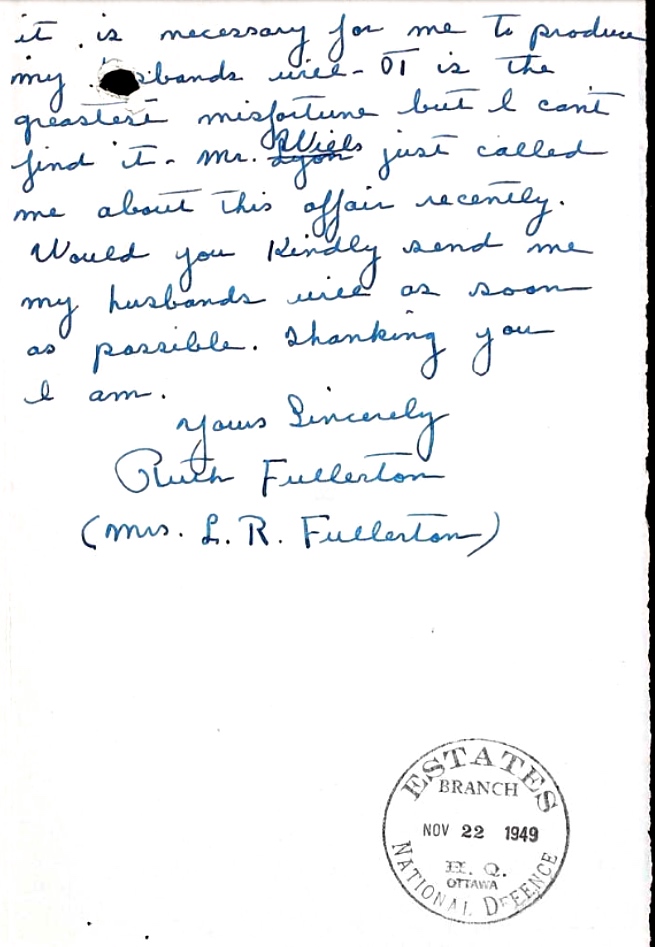 it is necessary for me to produce
my husbands will - It is the
greastest misfortune but I can't
find it - Mr. Wiels Lyon just called
me about this affair recently.
Would you Kindly send me
my husbands will as soon
as possible. Thanking you
I am.
Yours Sincerely
Ruth Fullerton
(Mrs. L. R. Fullerton)
ESTATES
BRANCH
NOV 22 1949
H. Q.
OTTAWA
NATIONAL DEFENCE